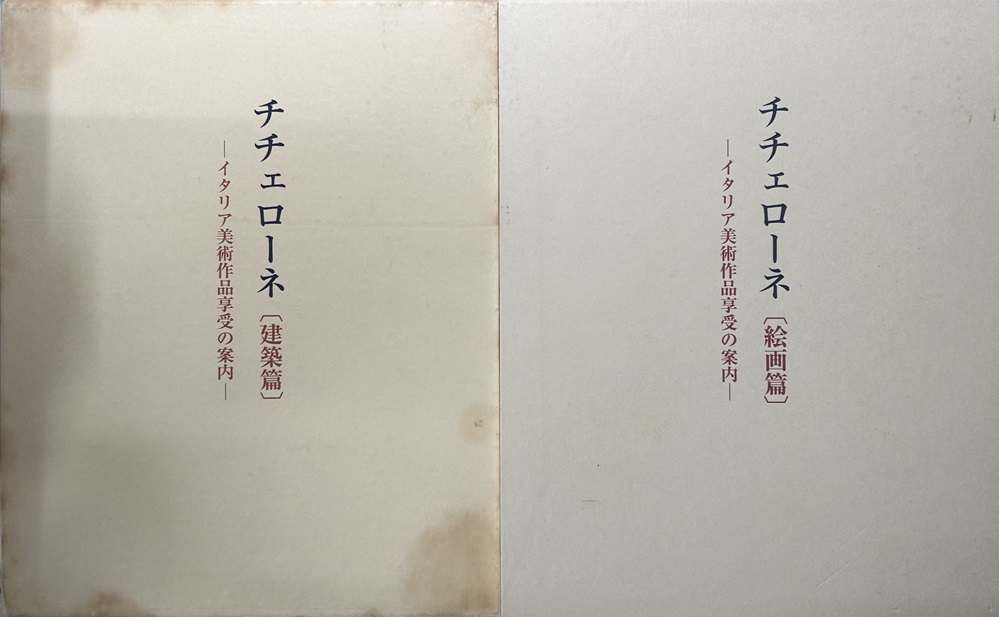 チチェローネ〔建築篇〕
―イタリア美術作品享受の案内―
チチェローネ〔絵画篇〕
―イタリア美術作品享受の案内―